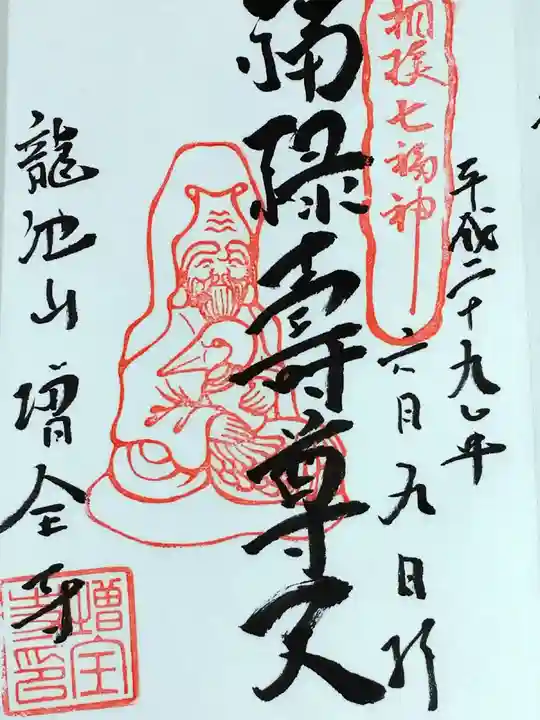 平成二十九年
六月九日
相模七福神
福禄寿尊天
龍池山 増全寺
増全寺印